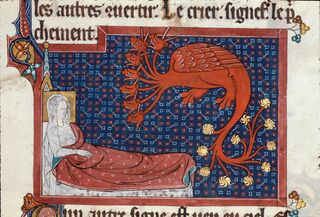 les autres auertir. Le crier. signef. le p̄
chement.
Un autre signe est ueu en ciel.